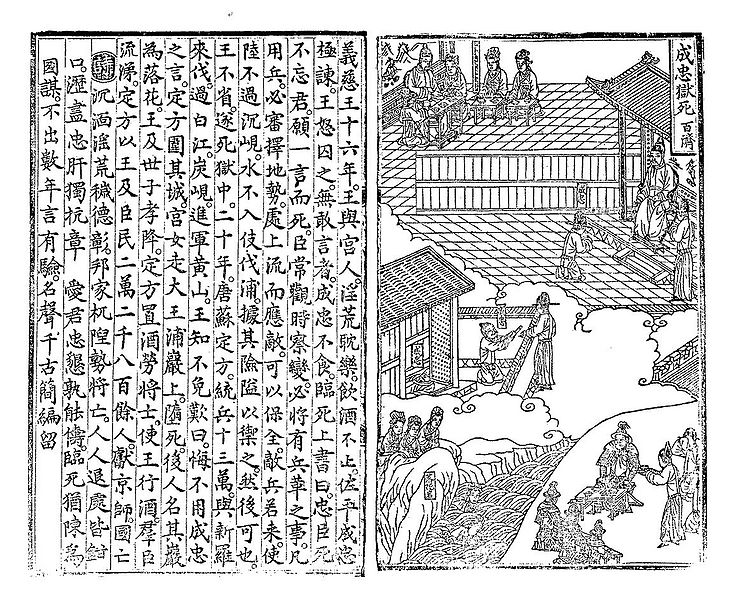 成忠獄死 百濟
義慈王十六年。王與宮人。淫荒耽樂。飲酒不止。佐平成忠
極諫。王怒囚之。無敢言者。成忠不食。臨死上書曰。忠臣死
不忘君。願一言而死。臣常觀時察變。必將有兵革之事。凡
用兵。必審擇地勢。處上流而應敵。可以保全。敵兵若来。使
陸不過沉峴。水不入伎伐浦。據其險隘以禦之。然後可也。
王不省。遂死獄中。二十年。唐蘇定方。統兵十三萬。與新羅
來伐。過白江。炭峴。進軍黃山。王知不免歎曰。悔不用成忠
之言。定方圍其城。宮女走大王浦巖上。隨死後人名其巖
為落花。王及世子孝降。定方置酒勞將士。使王行酒。羣臣
流涕。定方以王及臣民一萬二千八百餘人。獻京師。國亡
沉湎淫荒穢德彰。邦家杌隉勢將亡。人人退處皆鉗
口。瀝盡忠肝獨抗章 愛君忠懇孰能儔臨死猶陳為
國謀。不出數年言有驗。名聲千古簡編留